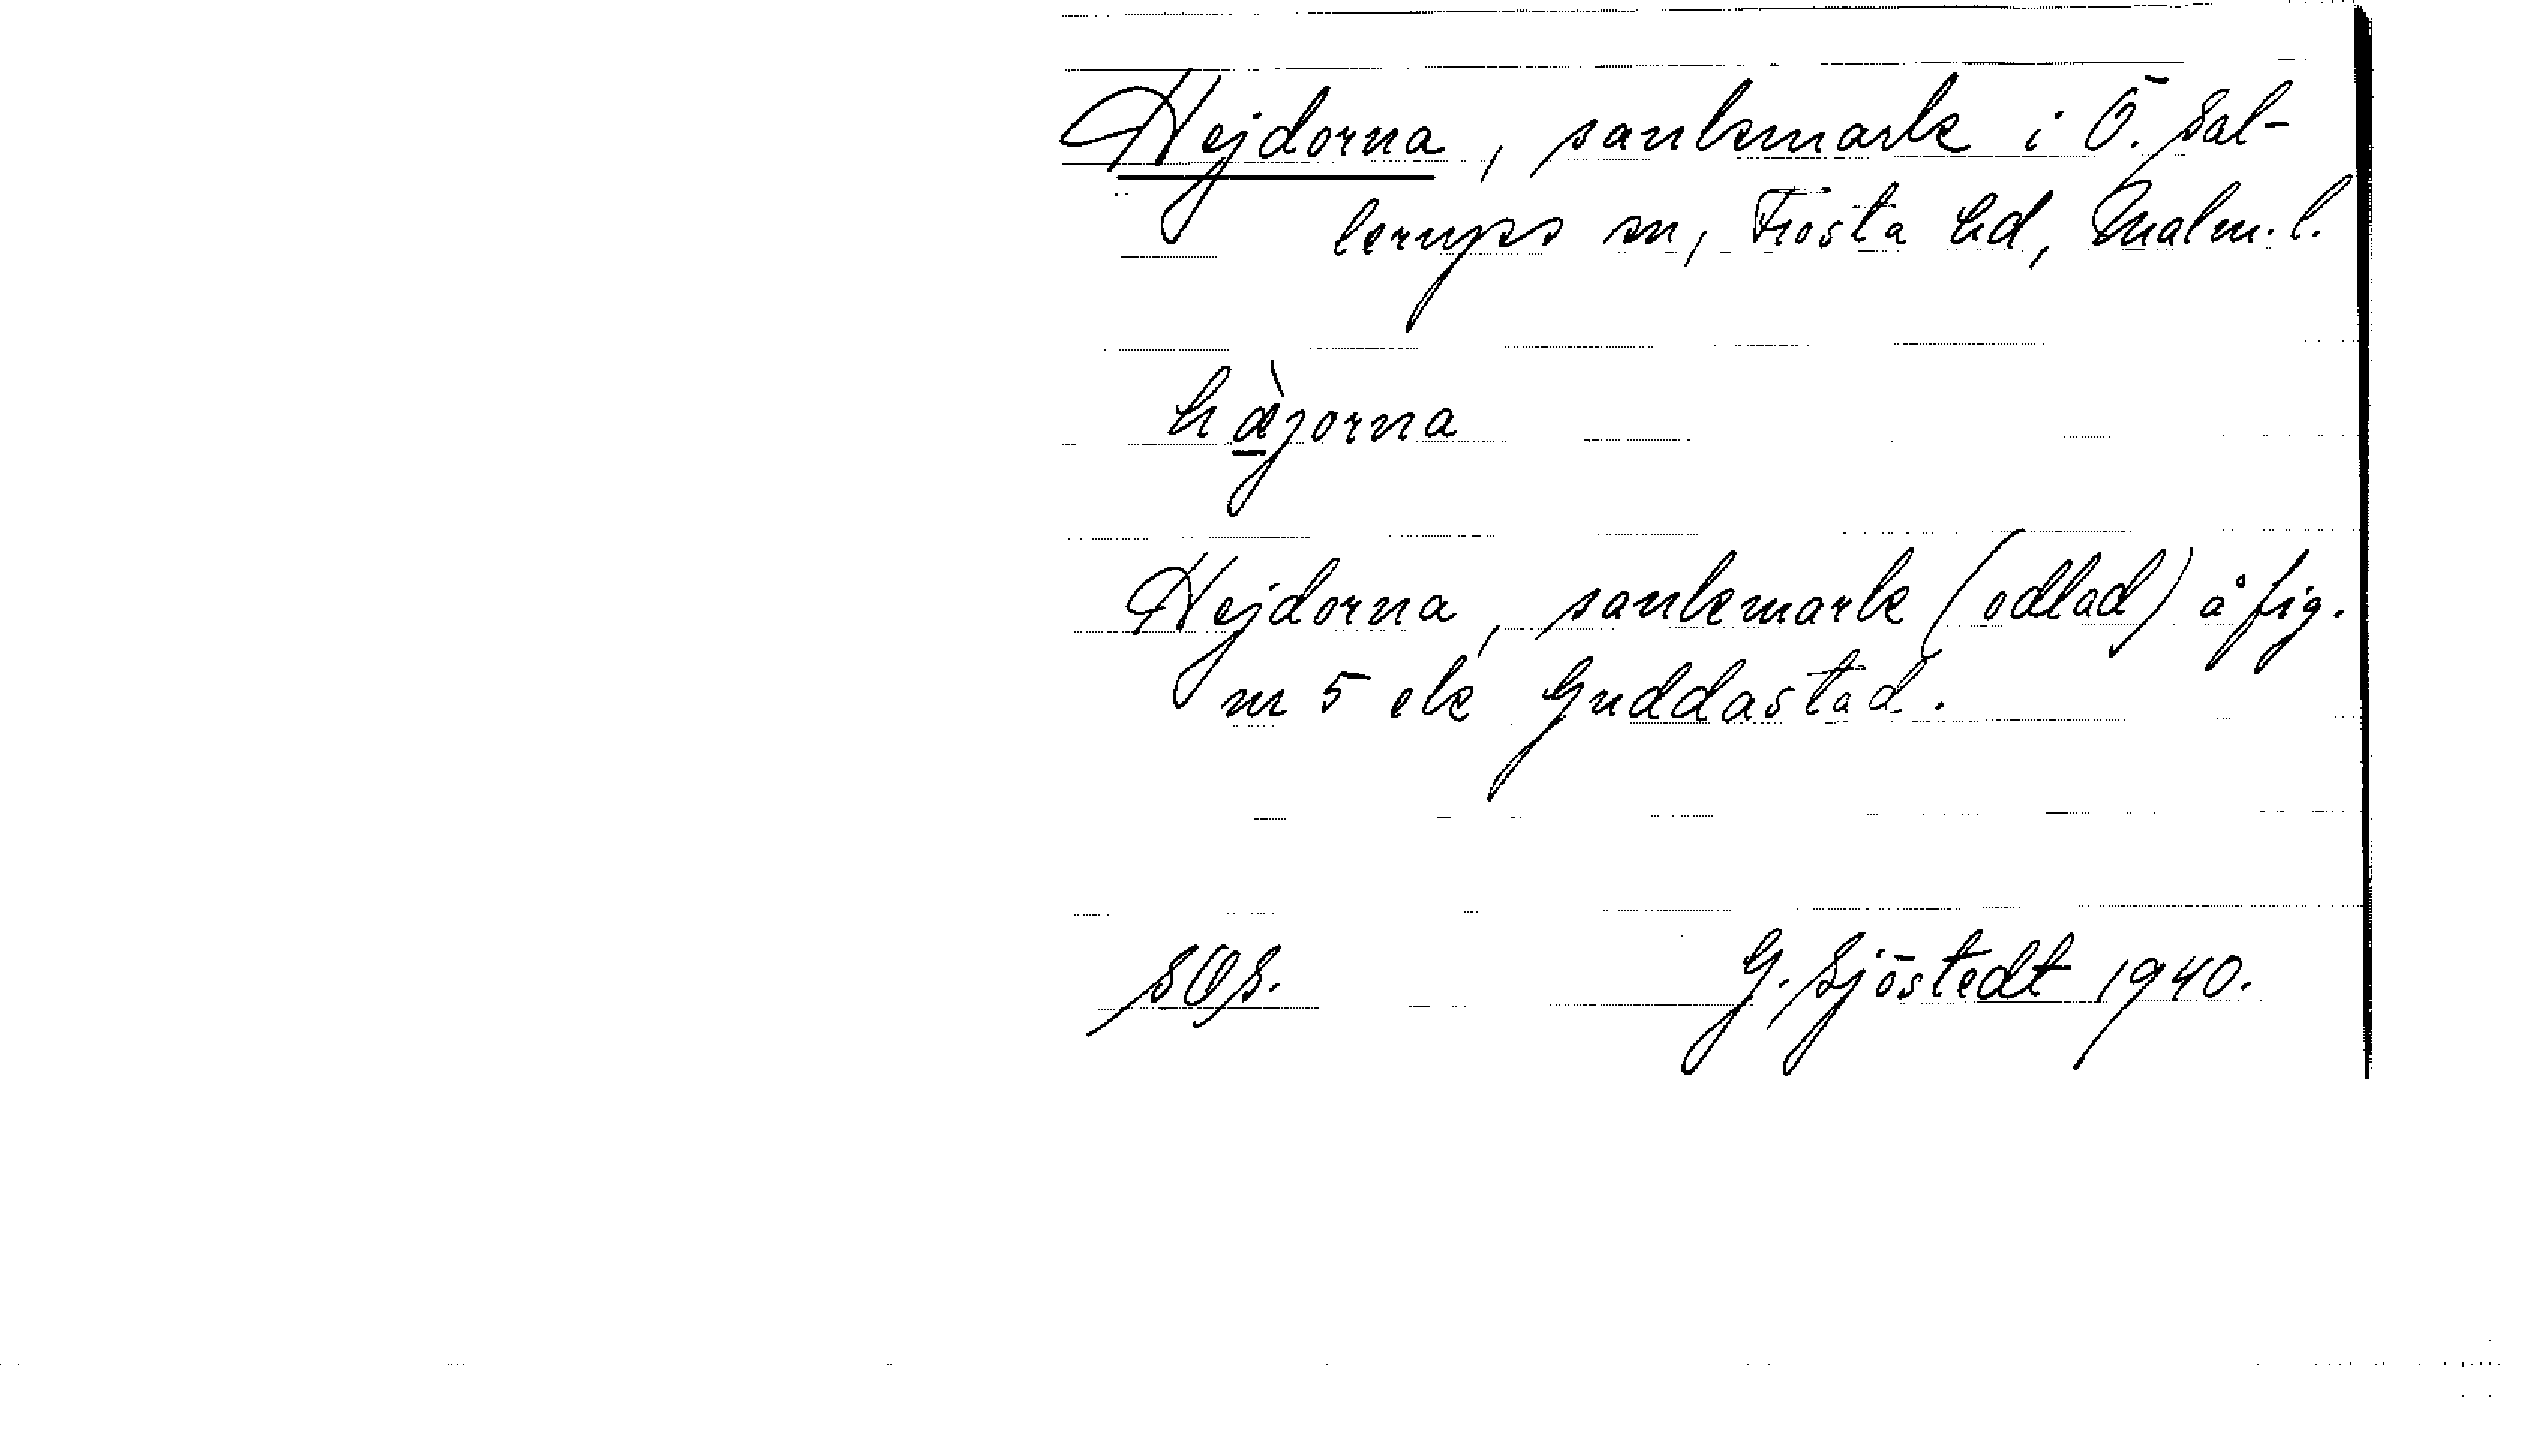 Hejdorna, sankmark i Ö. Sal-
lerups sn, Frosta hd, Malm. l.
hæ̀jorna
Hejdorna, sankmark (odlad) å fig.
nr 5 ek Guddastad.
SOS.
G. Sjöstedt 1940.